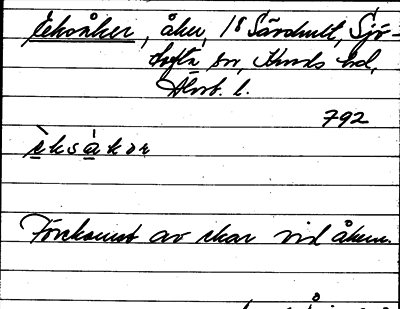 Ekoåker, åker, 18 Särahult, Sjö-
tofta sn, Kinds hd,
Älvsb. l.
792
èksákər
Förekomst av ekar vid åkern.